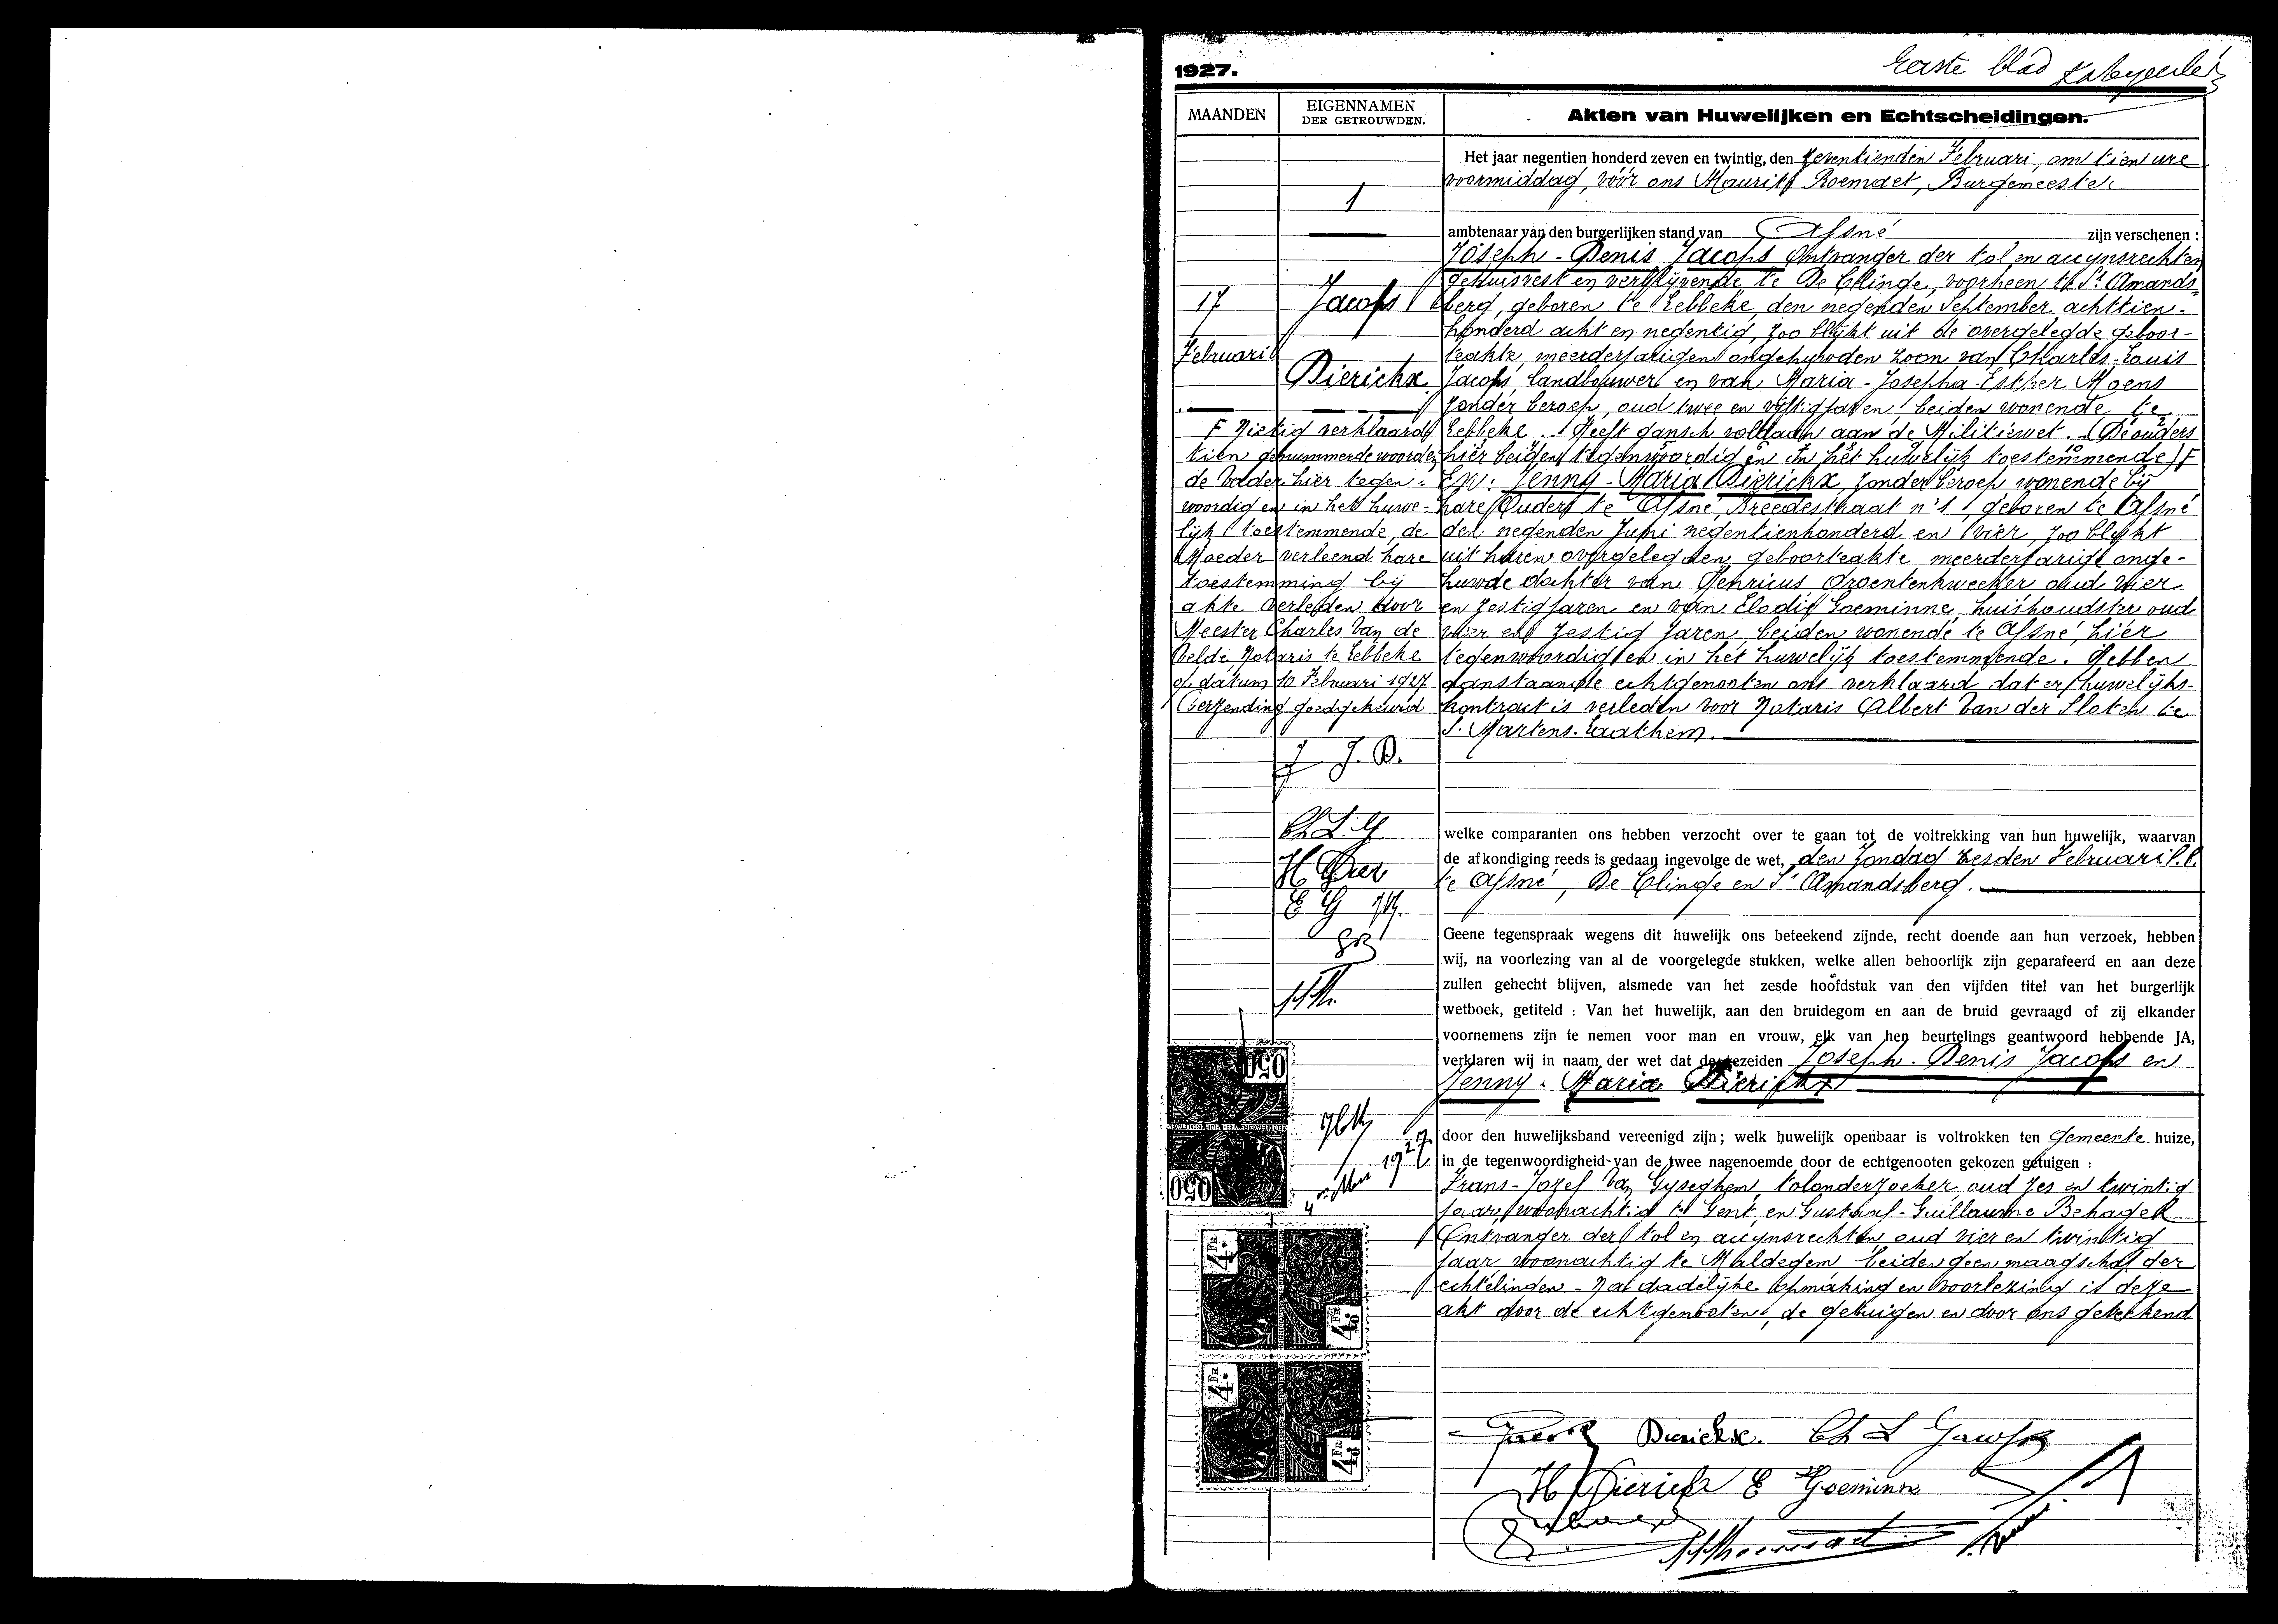 1927.
Eerste blad
MAANDEN
EIGENNAMEN
DER GETROUWDEN.
Akten van Huwelijken en Echtscheidingen.
1
17
Februari
Jacobs
Dierickx
F Nietig verklaard
tien genummerde woorden
de Vader hier tegen-
woordig en in het huwe-
lijk toestemmende, de
Moeder verleend hare
toestemming bij
akte verleden door
Meester Charles Van de
Velde, Notaris te Lebbeke
op datum 10 Februari 1927
(verzending goedgekeurd
J. D.
Ch L
H Dier
E G
Het jaar negentien honderd zeven en twintig, den zeventienden Februari, om tien ure
voormiddag, vóór ons Maurits Roemaet, Burgemeester
ambtenaar van den burgerlijken stand van Afsné zijn verschenen :
Joseph-Denis Jacobs Ontvanger der tol en accynsrechten
gehuisvest en verblijvende te De Clinge, voorheen te St Amands-
berg, geboren te Lebbeke, den negenden September achttien-
honderd acht en negentig, zoo blijkt uit de overgelegde geboor-
teakte, meerderjarigen ongehuwden zoon van Charles-Louis
Jacobs, landbouwer en van Maria-Josepha-Esther Moens
zonder beroep, oud twee en vijftig jaren beiden wonende te
Lebbeke. Heeft gansch voldaan aan de Militiewet. (De ouders
hier beiden tegenwoordig en in het huwelijk toestemmende) F
En: Jenny-Maria Dierickx, zonder beroep wonende bij
hare Ouders te Afsné, Breedestraat n° 1, geboren te Afsné
den negenden Juni negentienhonderd en vier, zoo blijkt
uit haren overgelegden geboorteakte meerderjarige onge-
huwde dochter van Henricus Groentenkweeker oud vier
en zestig jaren en van Elodie Goeminne huishoudster oud
vier en zestig jaren, beiden wonende te Afsné, hier
tegenwoordig en in het huwelijk toestemmende. Hebben
aanstaande echtgenooten ons verklaard dat er huwelijks-
kontract is verleden voor Notaris Albert Van der Sloten te
S. Martens-Laathem.
welke comparanten ons hebben verzocht over te gaan tot de voltrekking van hun huwelijk, waarvan
de afkondiging reeds is gedaan ingevolge de wet, den Zondag zesden Februari l.l.
te Afsné, De Clinge en St Amandsberg.
Geene tegenspraak wegens dit huwelijk ons beteekend zijnde, recht doende aan hun verzoek, hebben
wij, na voorlezing van al de voorgelegde stukken, welke allen behoorlijk zijn geparafeerd en aan deze
zullen gehecht blijven, alsmede van het zesde hoofdstuk van den vijfden titel van het burgerlijk
wetboek, getiteld : Van het huwelijk, aan den bruidegom en aan de bruid gevraagd of zij elkander
voornemens zijn te nemen voor man en vrouw, elk van hen beurtelings geantwoord hebbende JA,
verklaren wij in naam der wet dat de gezeiden Joseph-Denis Jacobs en
Jenny-Maria Dierickx
door den huwelijksband vereenigd zijn; welk huwelijk openbaar is voltrokken ten Gemeente huize,
in de tegenwoordigheid van de twee nagenoemde door de echtgenooten gekozen getuigen :
Frans-Jozef Van Gyseghem, tolonderzoeker, oud zes en twintig
jaar, woonachtig te Gent, en Gustaaf-Guillaume Behagel
Ontvanger der tol en accynsrechten oud vier en twintig
jaar woonachtig te Maldegem beiden geen maagschap der
echtelingen. Na dadelijke opmaking en voorlezing is deze
akt door de echtgenooten, de getuigen en door ons geteekend
050
050
1927
4 FR
4 FR
4 FR
4 FR
Dierickx. Ch L Jacobs
H Dierickx E Goeminne